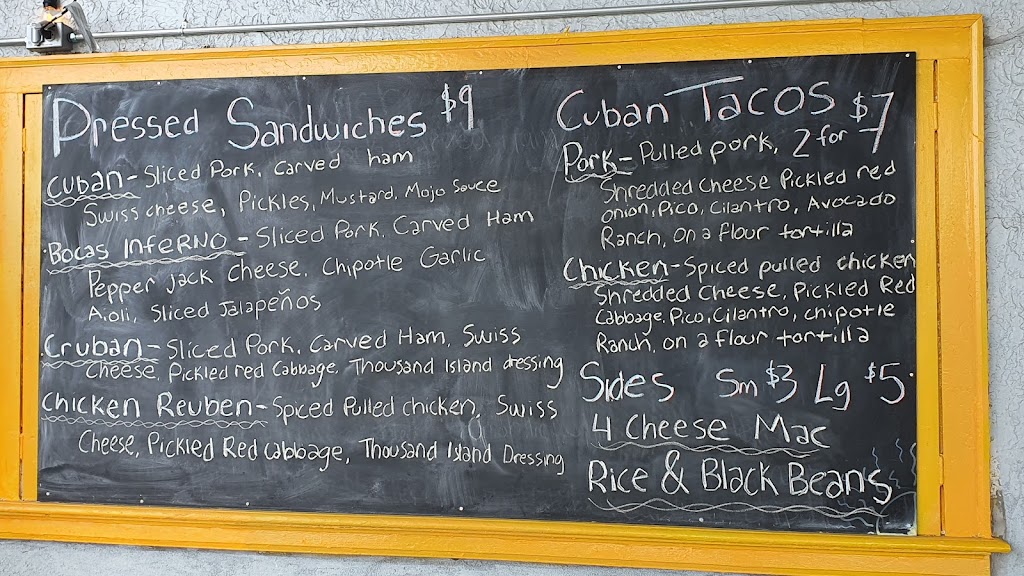 Pressed Sandwiches $9
Cuban - Sliced Pork, Carved ham
Swiss cheese, Pickles, Mustard, Mojo Sauce
Bocas Inferno - Sliced Pork, Carved Ham
Pepper jack cheese, Chipotle Garlic
Aioli, Sliced Jalapeños
Cruban - Sliced Pork, Carved Ham, Swiss
Cheese, Pickled red Cabbage, Thousand Island dressing
Chicken Reuben - Spiced Pulled chicken, Swiss
Cheese, Pickled Red Cabbage, Thousand Island Dressing
Cuban Tacos $7
Pork - Pulled pork, 2 for
Shredded Cheese Pickled red
onion, Pico, Cilantro, Avocado
Ranch, on a flour tortilla
Chicken - Spiced pulled chicken
Shredded Cheese, Pickled Red
Cabbage, Pico, Cilantro, chipotle
Ranch, on a flour tortilla
Sides Sm $3 Lg $5
4 Cheese Mac
Rice & Black Beans